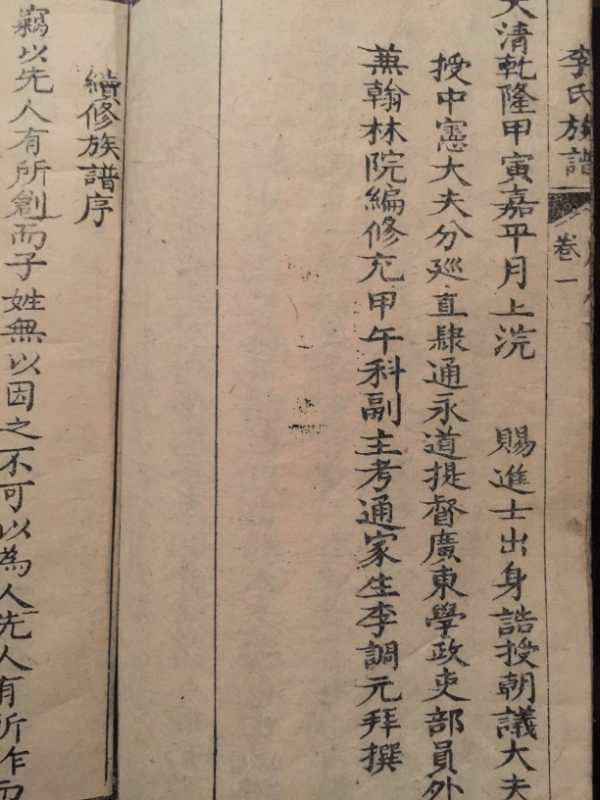 李氏族譜
卷一
大清乾隆甲寅嘉平月上浣 賜進士出身誥授朝議大夫
授中憲大夫分廵直隸通永道提督廣東學政吏部員外
蕪翰林院編修充甲午科副主考通家生李調元拜撰
續修族譜序
竊以先人有所創而子姓無以因之不可以為人先人有所作而